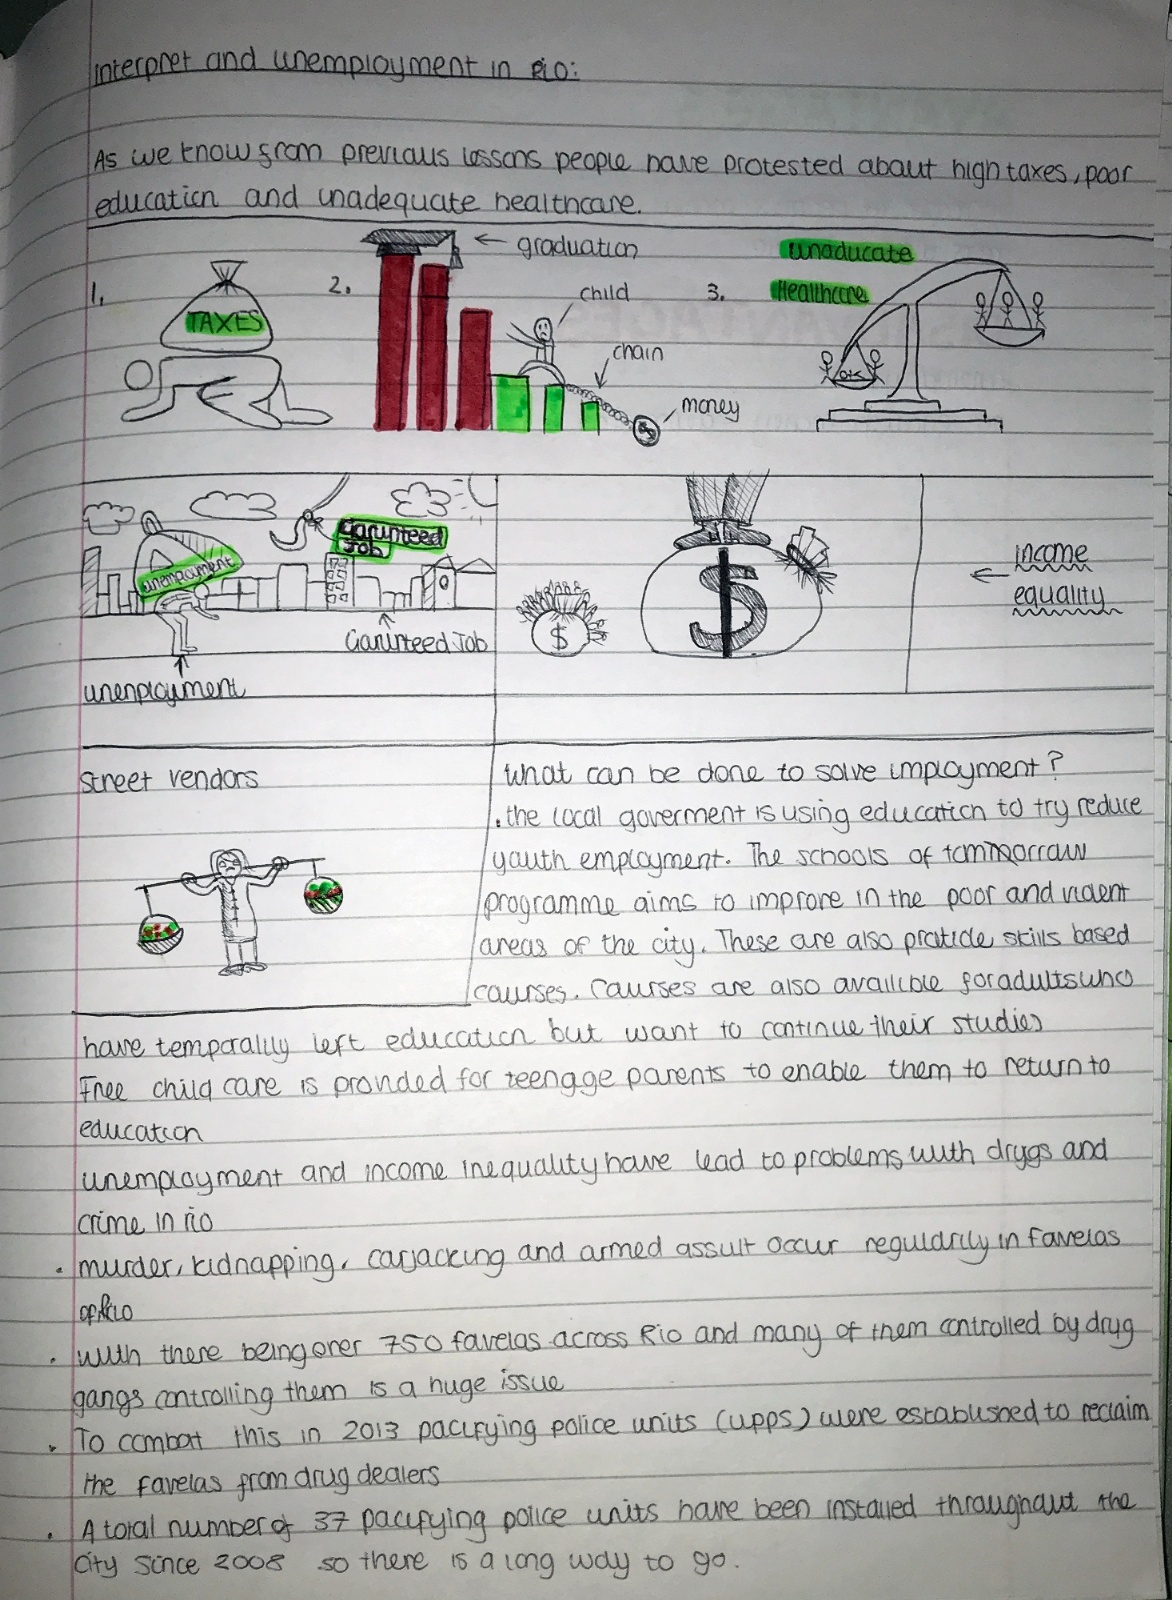 Interpret and unemployment in Rio:
As we know from previous lessons people have protested about high taxes, poor
education and inadequate healthcare.
1.
TAXES
2.
← graduation
child
chain
money
3.
unaducate
Healthcare
unemployment
Garunteed
Job
Garunteed Job
unemployment
$
$
← income
equality
Street vendors
What can be done to solve imployment?
. the local goverment is using education to try reduce
youth employment. The schools of tommorrow
programme aims to improve in the poor and violent
areas of the city. These are also praticle skills based
courses. Courses are also availible for adults who
have temporalily left education but want to continue their studies
Free child care is provided for teengge parents to enable them to return to
education
unemployment and income inequality have lead to problems with drygs and
crime in rio
. murder, kidnapping, carjacking and armed assult occur regularily in favelas
of Rio
. with there being over 750 favelas across Rio and many of them controlled by drug
gangs controlling them is a huge issue
. To combat this in 2013 pacifying police units (upps) were established to reclaim
the favelas from drug dealers
. A total number of 37 pacifying police units have been installed throughout the
City since 2008 so there is a long way to go.